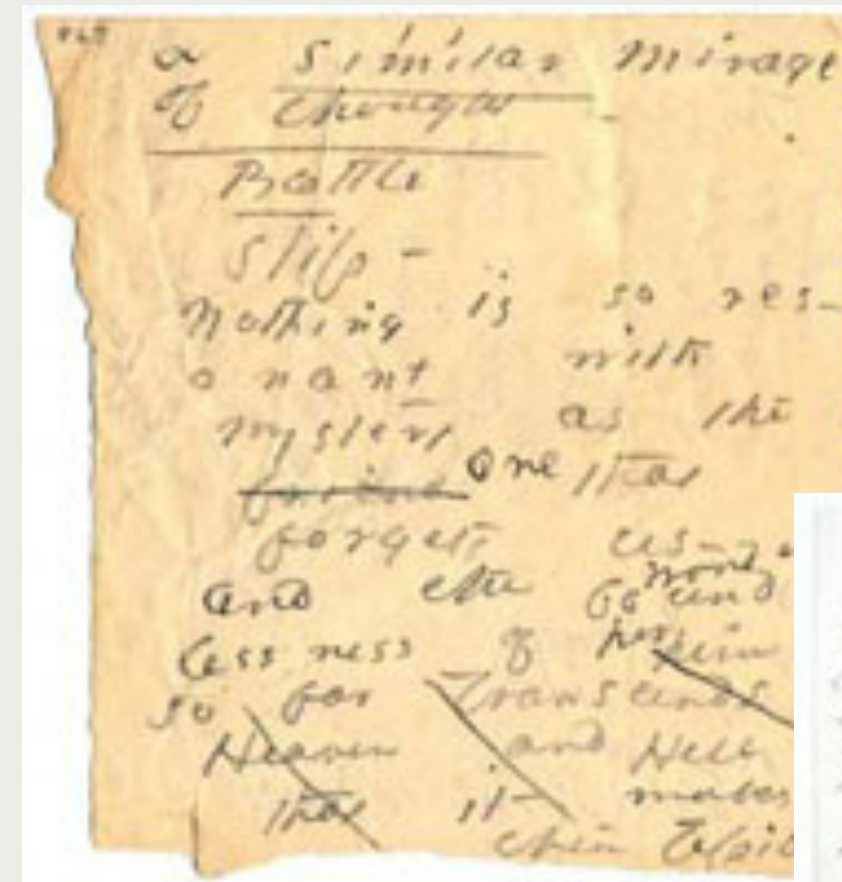 a similar mirage
of thought -
Battle
slip -
nothing is so res-
onant with
mystery as the
friend one that
forgets us -
and the bound
wond
less ness of her him
so far Transcends
Heaven and Hell
that it makes
them Tepid